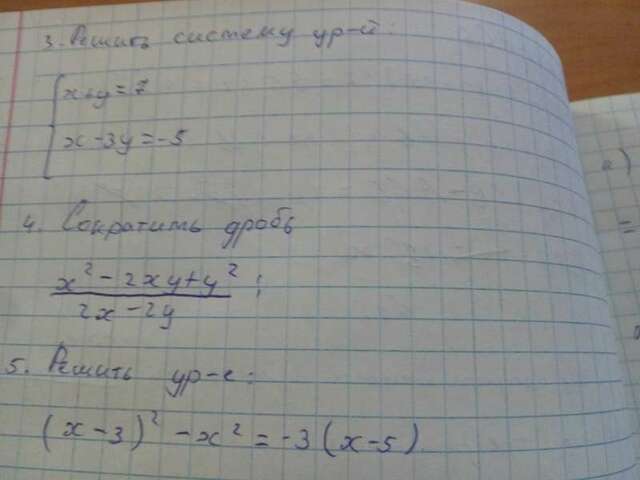 3. Решить систему ур-й:
x+y=7
x-3y=-5
4. Сократить дробь
x²-2xy+y²
2x-2y ;
5. Решить ур-е:
(x-3)²-x²=-3(x-5)
а)
=